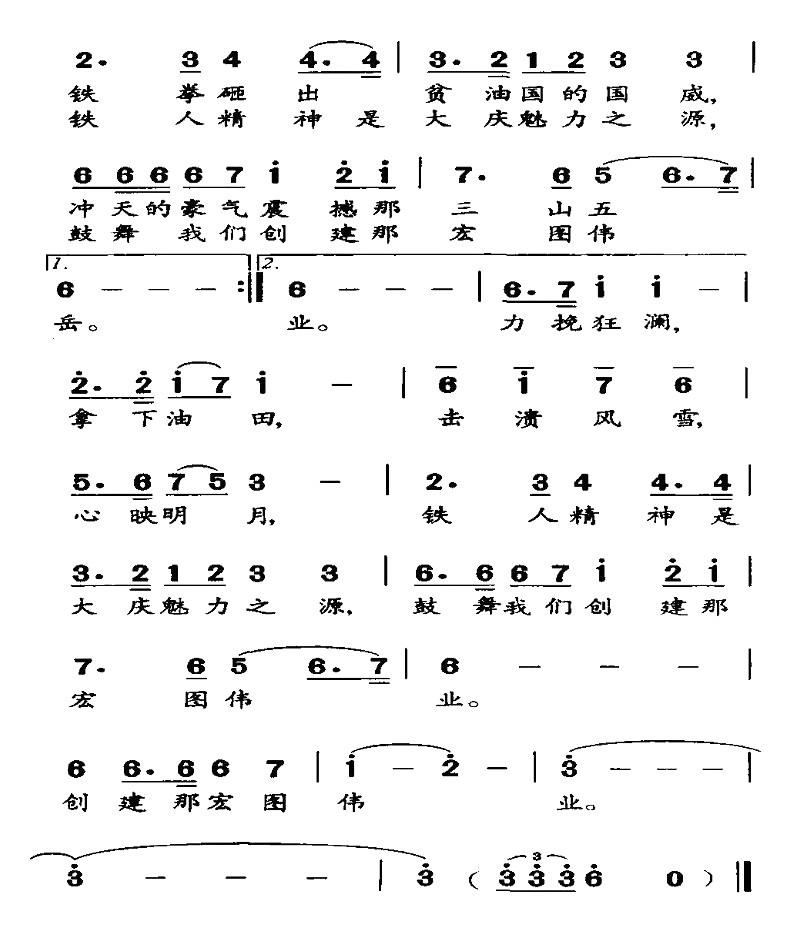 2. 3 4 4. 4 | 3. 2 1 2 3 3 |
铁 拳 砸 出 贫 油 国 的 国 威，
铁 人 精 神 是 大 庆 魅 力 之 源，
6 6 6 6 7 i 2 i | 7. 6 5 6. 7 |
冲 天 的 豪 气 震 撼 那 三 山 五
鼓 舞 我 们 创 建 那 宏 图 伟
1. 2.
6 – – – :‖ 6 – – – | 6. 7 i i – |
岳。 业。 力 挽 狂 澜，
2. 2 i 7 i – | 6 i 7 6 |
拿 下 油 田， 击 溃 风 雪，
5. 6 7 5 3 – | 2. 3 4 4. 4 |
心 映 明 月， 铁 人 精 神 是
3. 2 1 2 3 3 | 6. 6 6 7 i 2 i |
大 庆 魅 力 之 源， 鼓 舞 我 们 创 建 那
7. 6 5 6. 7 | 6 – – – |
宏 图 伟 业。
6 6. 6 6 7 | i – 2 – | 3 – – – |
创 建 那 宏 图 伟 业。
3 – – – | 3 ( 3 3 3 6 0 ) ‖
3